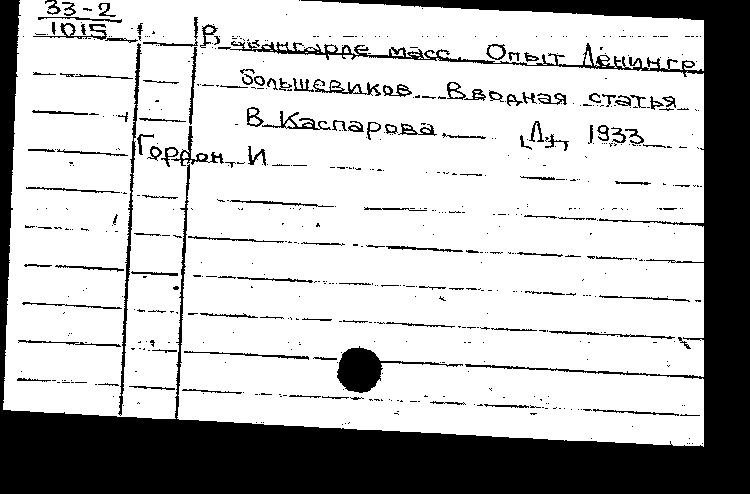 33-2
1015
В авангарде масс. Опыт Ленингр.
большевиков. Вводная статья
В Каспарова. — [Л.], 1933
Гордон, И